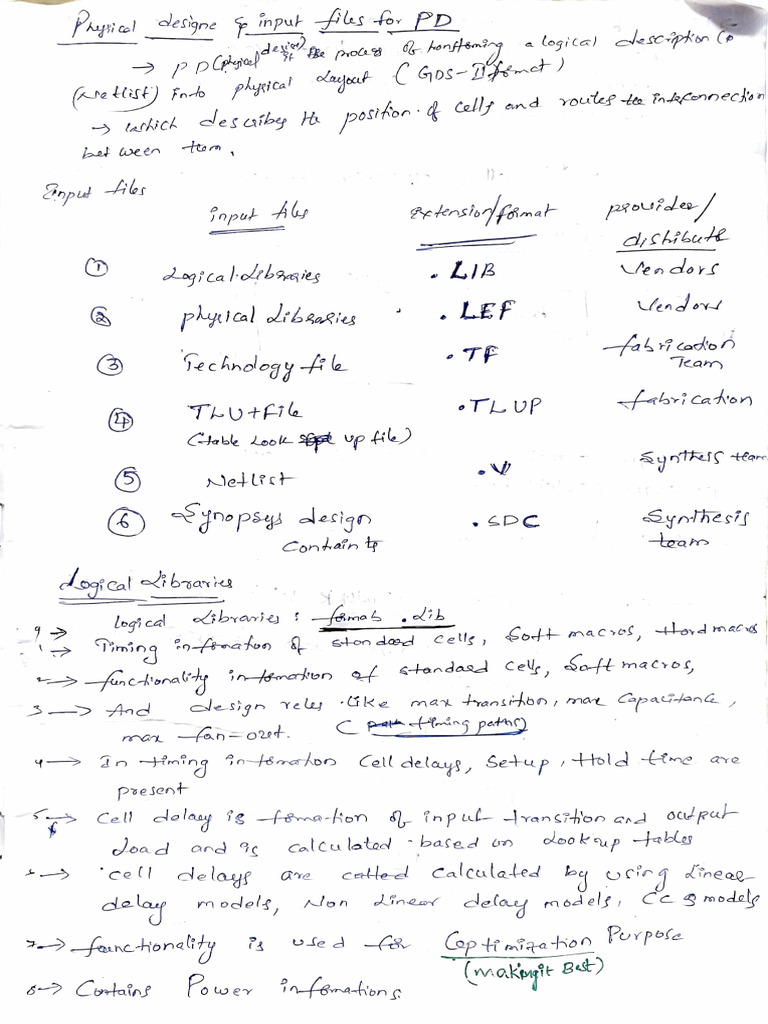 Physical designe & input files for PD
→ PD (physical design) it the process of tonsfoming a logical description (
(Netlist) into physical Layout (GDS-II fomct)
→ which describes the position of cells and routes the interconnection
bet ween tem.
Input files
input files extension/format provider/
distribute
① Logical Libraries .LIB Vendors
② physical Libraries .LEF Vendors
③ Technology file .TF fabrication
Team
④ TLU+File .TLUP fabrication
(table Look up file)
⑤ Netlist .V Synthess team
⑥ Synopsys design .SDC Synthesis
Contraints team
Logical Libraries
→ logical Libraries: formats .Lib
1 → Timing infomation of standard cells, Soft macros, Hard macros
2 → functionality infomation of standard cells, Soft macros,
3 → And design reles like max transition, max Capacitance,
max fan-out. (timing paths)
4 → In timing infomation Cell delays, Setup, Hold time are
present
5 → Cell delay is fomation of input transition and output
Load and is calculated based on Lookup tables
→ cell delays are called calculated by using Linear
delay models, Non Linear delay models, CCS models
7 → functionality is used for Coptimization Purpose
(making it Best)
8 → Contains Power infomations.